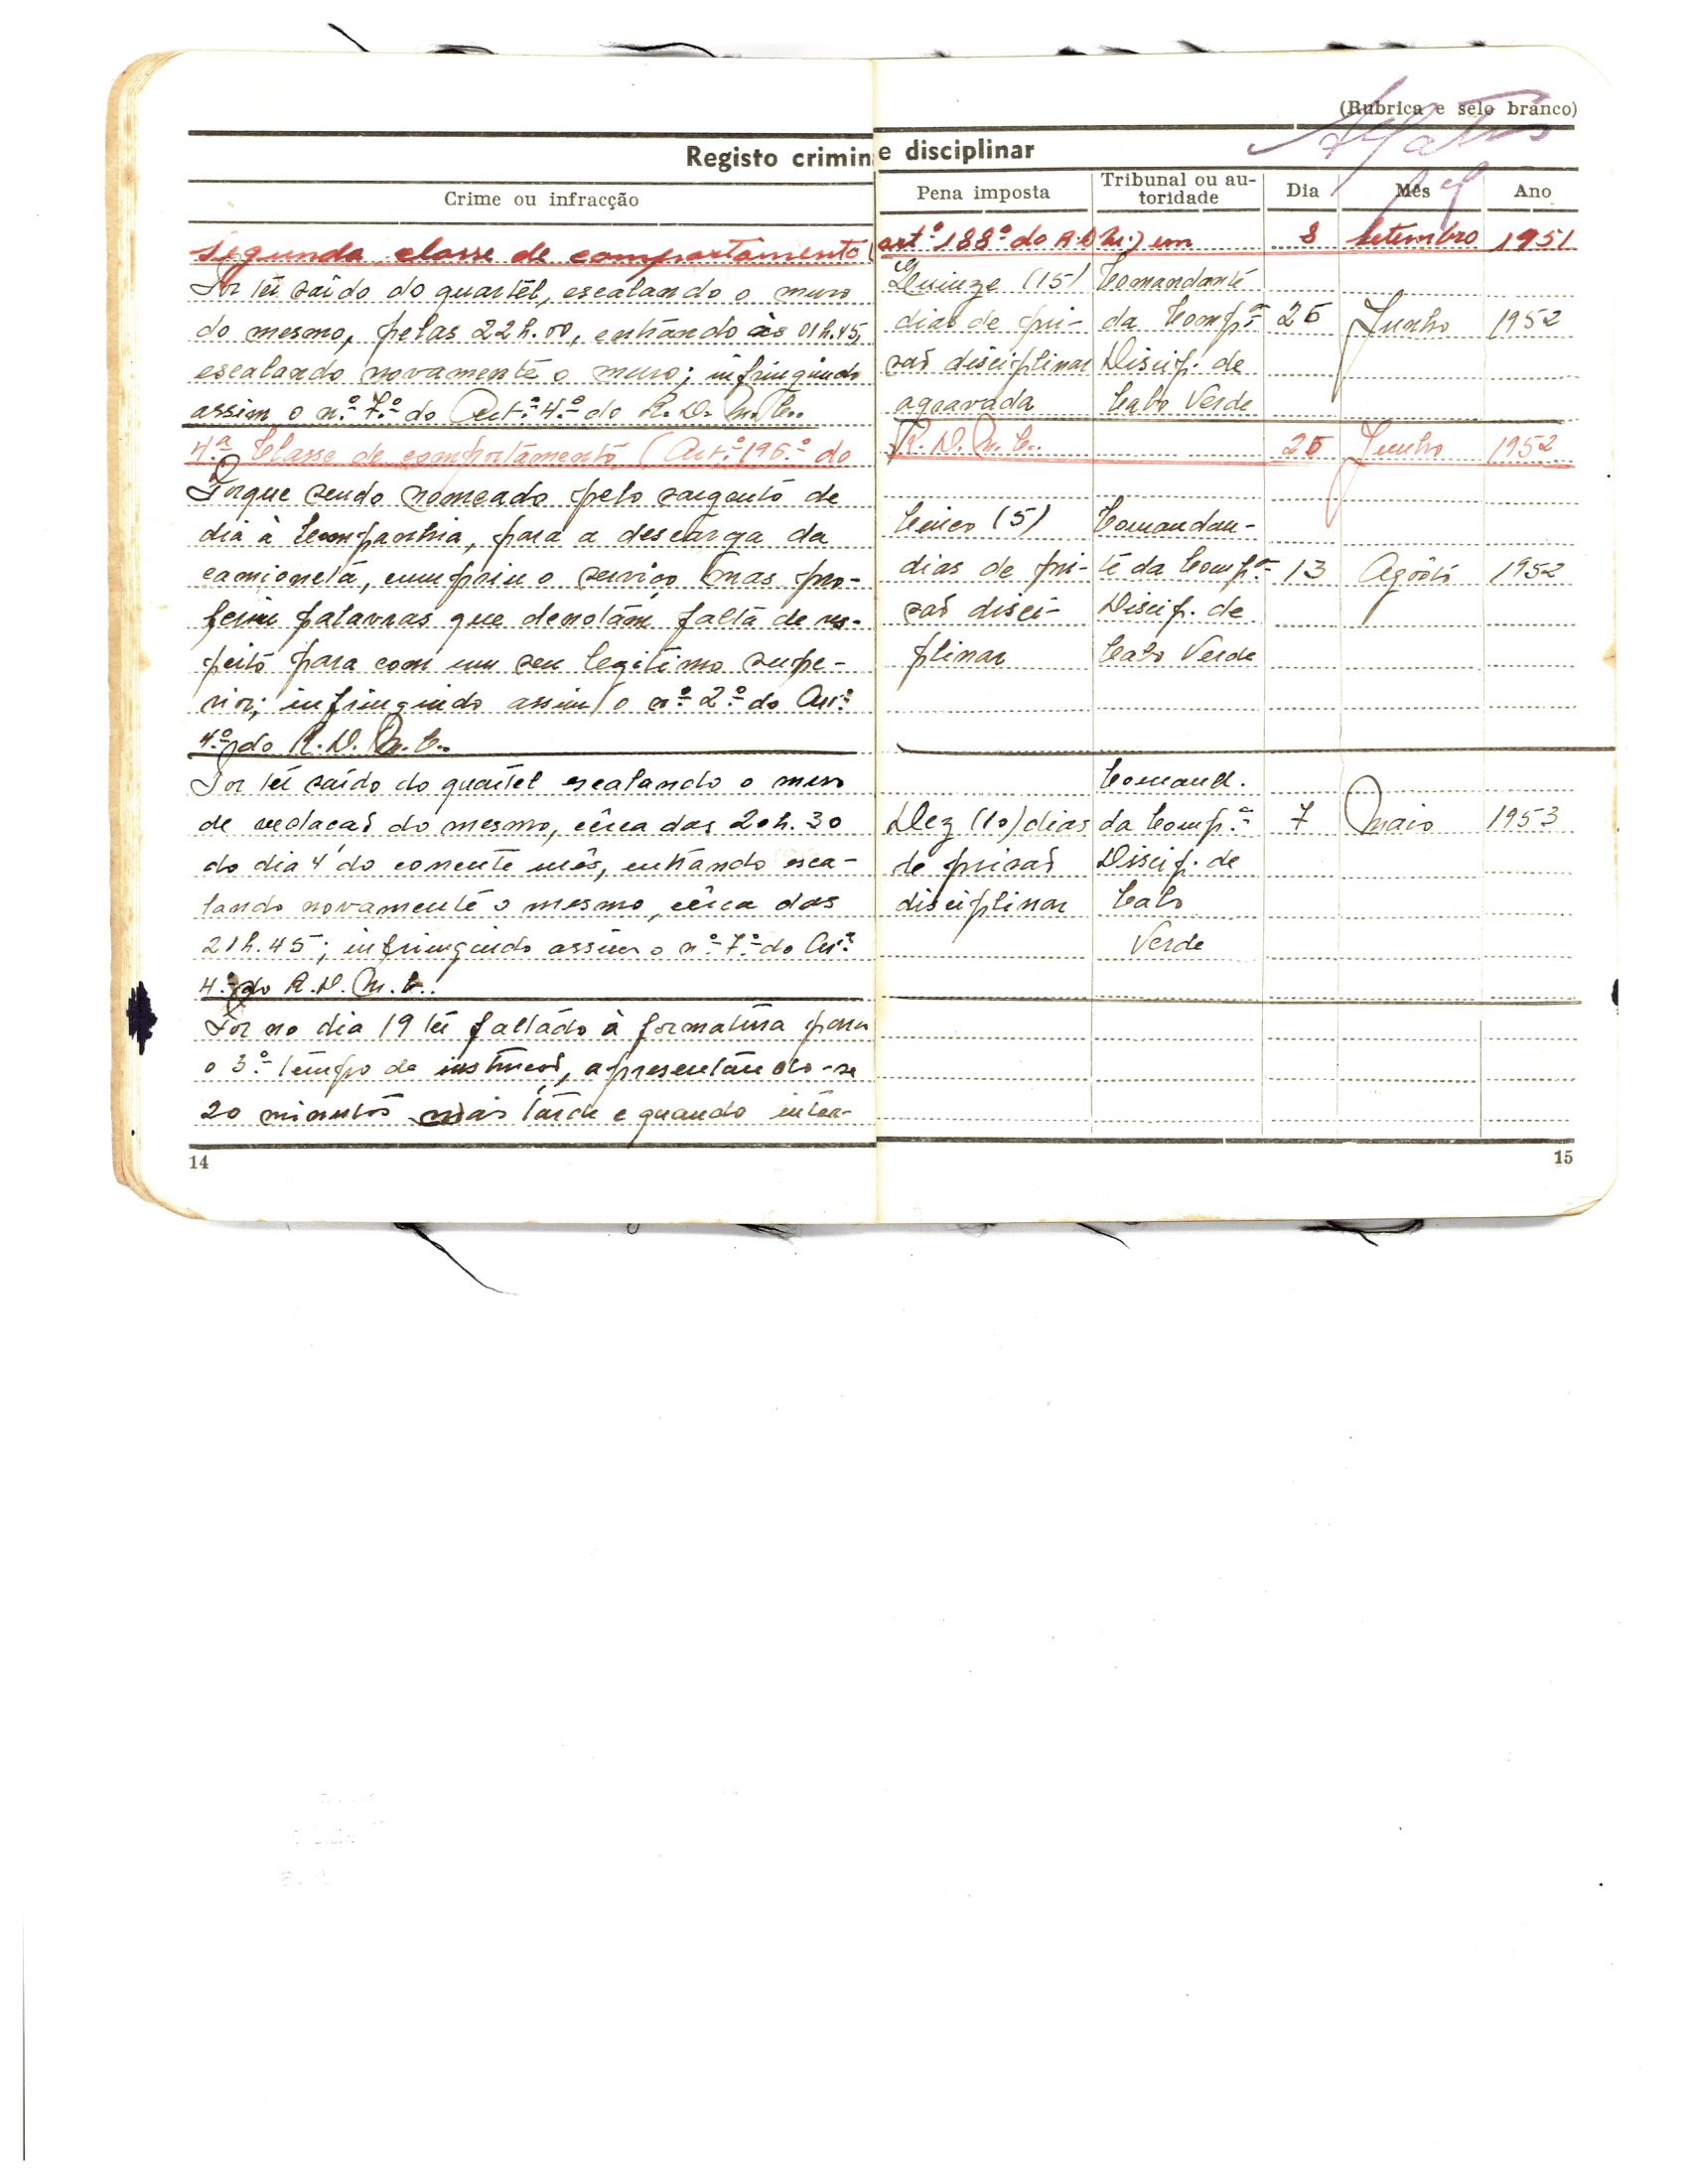 (Rubrica e selo branco)
Registo crimin e disciplinar
Crime ou infracção
Pena imposta
Tribunal ou au-
toridade
Dia
Mês
Ano
Segunda classe de comportamento ( art.º 188º do R.D.M.) em 8 Setembro 1951
Por ter saído do quartel, escalando o muro
do mesmo, pelas 22h.00, entrando às 01h.45,
escalando novamente o muro; infringindo
assim o n.º 7.º do Art.º 4.º do R. D. M. C..
Quinze (15)
dias de pri-
saõ disciplinar
agravada
Comandante
da Comp.ª
Discip. de
Cabo Verde
26 Junho 1952
4.ª Classe de comportamento (Art.º 196.º do R. D. M. C.. 26 Junho 1952
Porque sendo nomeado pelo sargento de
dia à Companhia, para a descarga da
camioneta, cumpriu o serviço mas pro-
feriu palavras que denotam falta de res-
peito para com um seu legitimo supe-
rior; infringindo assim o n.º 2.º do Art.º
4.º do R. D. M. C..
Cinco (5)
dias de pri-
saõ disci-
plinar
Comandan-
te da Comp.ª
Discip. de
Cabo Verde
13 Agôsto 1952
Por ter saído do quartel escalando o muro
de vedacaõ do mesmo, cêrca das 20h.30
do dia 4 do corrente mês, entrando esca-
lando novamente o mesmo, cêrca das
21h.45; infringindo assim o n.º 7.º do Art.º
4.º do R. D. M. C..
Dez (10) dias
de prisaõ
disciplinar
Comand.
da Comp.ª
Discip. de
Cabo
Verde
7 Maio 1953
Por no dia 19 ter faltado à formatura para
o 3.º tempo de instrucaõ, apresentando-se
20 minutos mais tarde e quando inter-
14
15